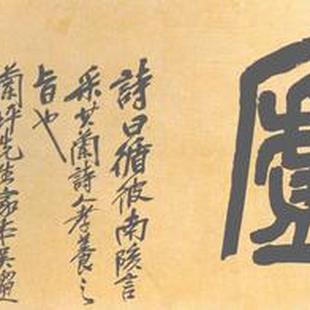 廬
詩曰循彼南陔言
采其蘭詩人孝養之
旨也
蘭坪先生